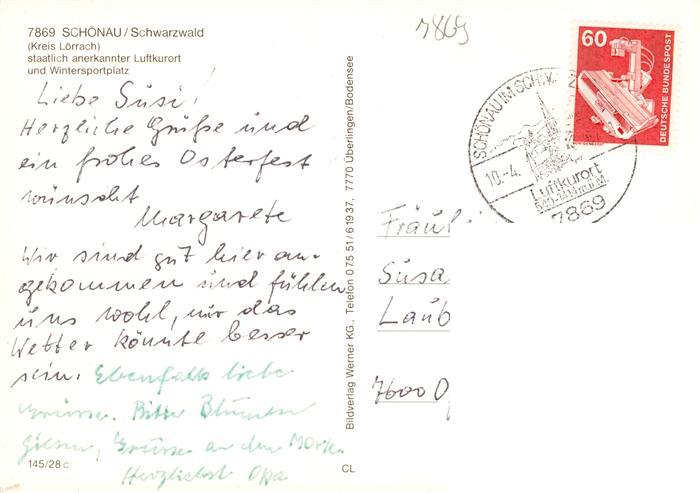 7869 SCHÖNAU/Schwarzwald
(Kreis Lörrach)
staatlich anerkannter Luftkurort
und Wintersportplatz
Liebe Susi!
Herzliche Grüße und
ein frohes Osterfest
wünscht
Margarete
Wir sind gut hier an-
gekommen und fühlen
uns wohl, nur das
Wetter könnte besser
sein. Ebenfalls liebe
Grüsse. Bitte Blumen
giessen, Grüsse an den
Herzlichst Opa
145/28 c
CL
Bildverlag Werner KG., Telefon 0 75 51/6 19 37, 7770 Überlingen/Bodensee
7869
60
DEUTSCHE BUNDESPOST
SCHÖNAU IM SCHW
10.-4.
Luftkurort
7869
Fräul
Susa
Laub
7600 O